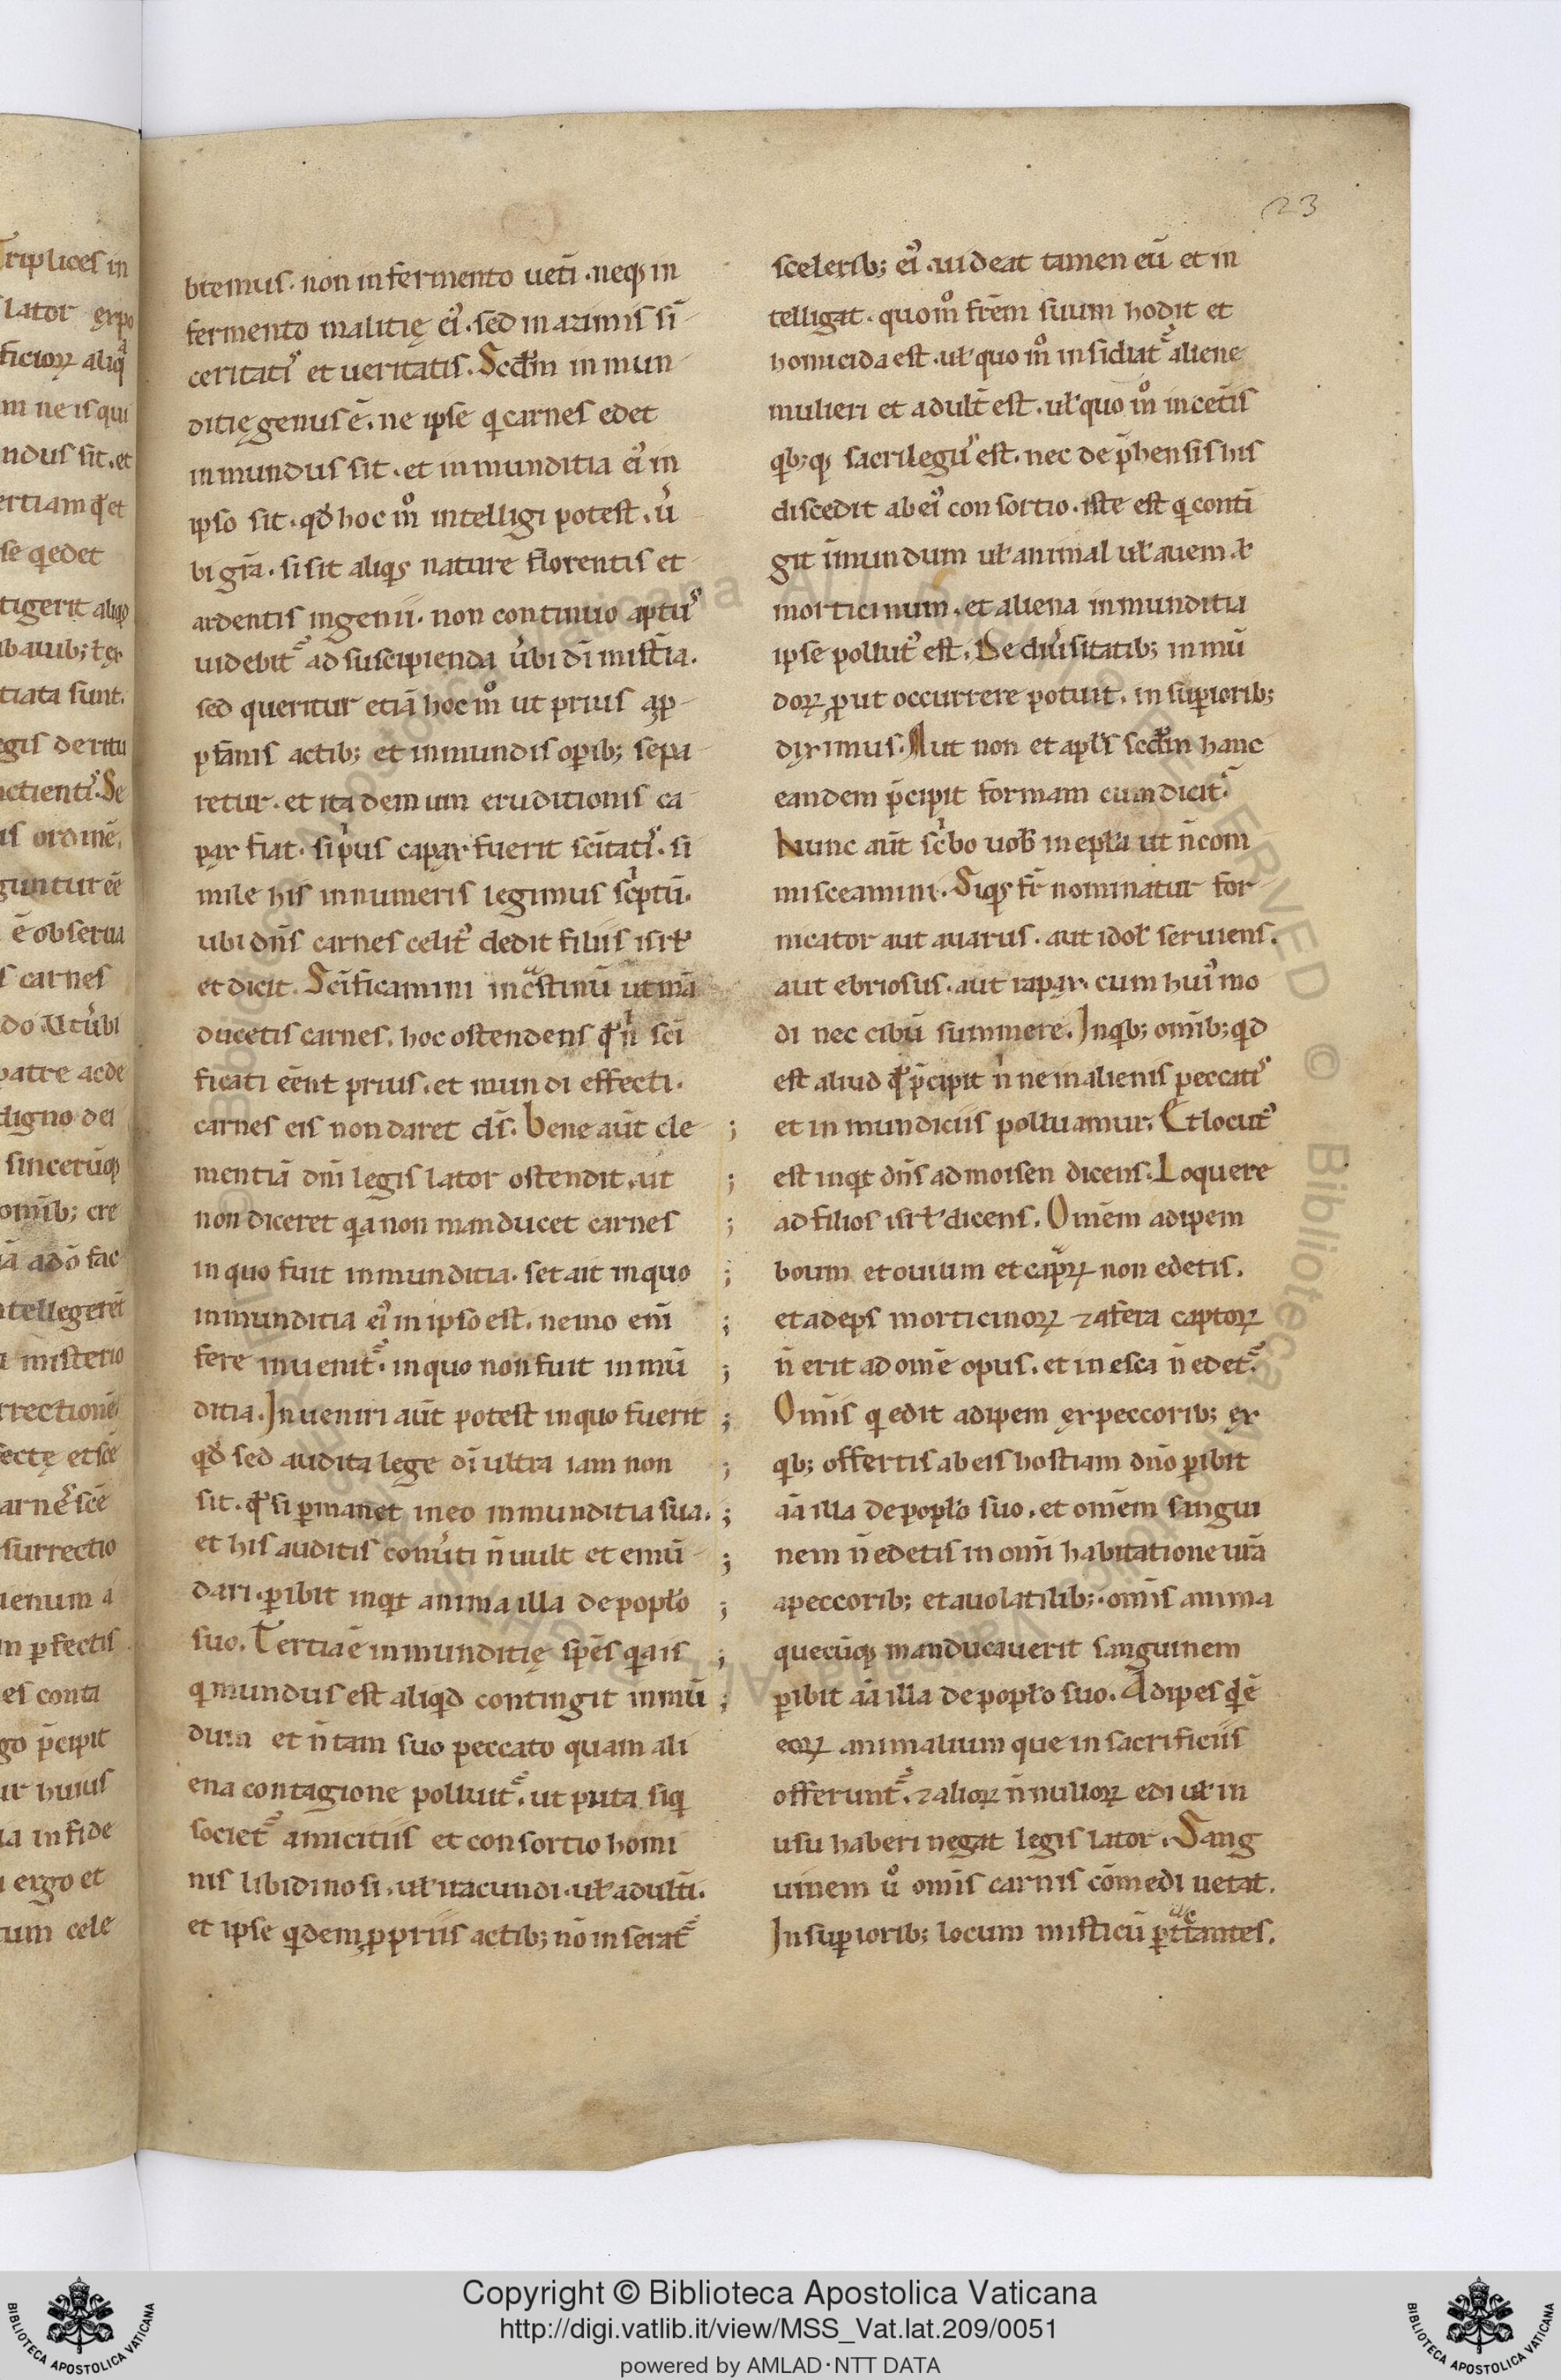 23
Triplices in
lator ęxpo
ficiorꝝ aliq̃
m ne is qui
ndus sit. et
ertiam q̊ et
se q edet
tigerit aliq̊
tiata sunt.
egis de ritu
actienti᾽. Se
is ordinē.
guntur eē
ē obserua
s carnes
do. Ut ůbi
patre ac de
digno dei
sincerūqꝫ
omib; cre
iā ad ō fac
ntellegeret̄
a misterio
rrectionē
fectę et scē
arnē᾽ scē
surrectio
ienum a
m ꝑfectis
es conta
go p̄cipit
ur huius
ia in fide
i ergo et
tum cele
btemus. non in fermento ueti̅. neqꝫ in
fermento malitię ei᾽. sed in azimis si-
ceritati᾽ et ueritatis. Scdm̄ inmun-
ditię genus ē. ne ipse q carnes edet
inmundus sit. et inmunditia ei᾽ in
ipso sit. qd̄ hoc m̊ intelligi potest. ů
bi gr̄a. si sit aliqs nature florentis et
ardentis ingenii. non continuo aptu᾽
uidebit᾽ ad suscipienda ůbi dī mist̄ia.
sed queritur etiā hoc m̊ ut prius a ꝓ-
ꝓfanis actib; et inmundis oꝑib; sepa-
retur. et ita demum eruditionis ca-
pax fiat. si p̓us capax fuerit sc̄itati᾽. si
mile his in numeris legimus sc̓ptū.
ubi dn̄s carnes celit᾽ dedit filiis isrl̄
et dicit. Sc̄ificamini in c̾stinū ut mā
ducetis carnes. hoc ostendens q̊ n̓ sc̄i
ficati eēnt prius. et mundi effecti.
carnes eis non daret ds̄. Bene aūt cle-
mentiā dn̄i legis lator ostendit. ut
non diceret q̾a non manducet carnes
in quo fuit inmunditia. set ait in quo
inmunditia ei᾽ in ipso est. nemo eni̅
fere inuenit᾽. in quo non fuit inmū
ditia. Inueniri aūt potest in quo fuerit
qd̄ sed audita lege dī ultra iam non
sit. q̊ si ꝑmanet in eo inmunditia sua.
et his auditis conůti n̄ uult et emū-
dari. ꝑibit inqt anima illa de popło
suo. Tertia ē inmunditię spēs q̾ a is
q mundus est aliqd contingit inmū
dum et n̄ tam suo peccato quam ali
ena contagione polluit᾽. ut puta siq
societ᾽ amicitiis et consortio homi
nis libidinosi. uł iracundi. uł adulti̅.
et ipse qdem ꝓpriis actib; nō inserat᾽
;
;
;
;
;
;
;
;
;
;
;
;
;
scelerib; ei᾽. uideat tamen eū et in
telligat. quom̊ frēm suum hodit et
homicida est. uł quo m̊ insidiat᾽ aliene
mulieri et adult̄ est. uł quo m̊ in cet̄is
qb;qꝫ sacrilegu᾽ est. nec dep̄hensis his
discedit ab ei᾽ consortio. iste est q conti̅
git īmundum uł animal uł auem. ł
morticinum. et aliena inmunditia
ipse pollut᾽ est. De diůsitatib; inmū
dorꝝ ꝓut occurrere potuit. in suꝑiorib;
diximus. Aut non et apłs scdm̄ hanc
eandem p̄cipit formam cum dicit.
Nunc aūt sc̓bo uob̄ in epła ut n̄ com
misceamini. Siqs fr̄ nominatur for-
nicator aut auarus. aut idoł seruiens.
aut ebriosus. aut rapax. cum hui᾽mo
di nec cibū summere. In qb; omīb; qd
est aliud q̊ p̄cipit n̓ ne in alienis peccati᾽
et inmundiciis polluamur. Et locut᾽
est inqt dn̄s ad moisen dicens. Loquere
ad filios isrł dicens. Omēm adipem
boum et ouium et cap̾rꝝ non edetis.
et adeps morticinorꝝ ⁊ a fera captorꝝ
n̄ erit ad omē opus. et in esca n̄ edet᾽.
Omīs q edit adipem ęx peccorib; ęx
qb; offertis ab eis hostiam dn̄o ꝑibit
aīa illa de popło suo. et omēm sangui
nem n̄ edetis in omi̅ habitatione ur̄a
a peccorib; et a uolatilib;. omīs anima
quecūqꝫ manducauerit sanguinem
ꝑibit aīa illa de popło suo. Adipes qdē
eorꝝ animalium que in sacrificiis
offerunt᾽. ⁊ aliorꝝ n̄nullorꝝ edi uł in
usu haberi negat legis lator. Sang
uinem ů omīs carnis cōmedi uetat.
In suꝑiorib; locum misticū ꝑt̾ctantes.
Copyright © Biblioteca Apostolica Vaticana
http://digi.vatlib.it/view/MSS_Vat.lat.209/0051
powered by AMLAD·NTT DATA
BIBLIOTECA APOSTOLICA VATICANA
BIBLIOTECA APOSTOLICA VATICANA